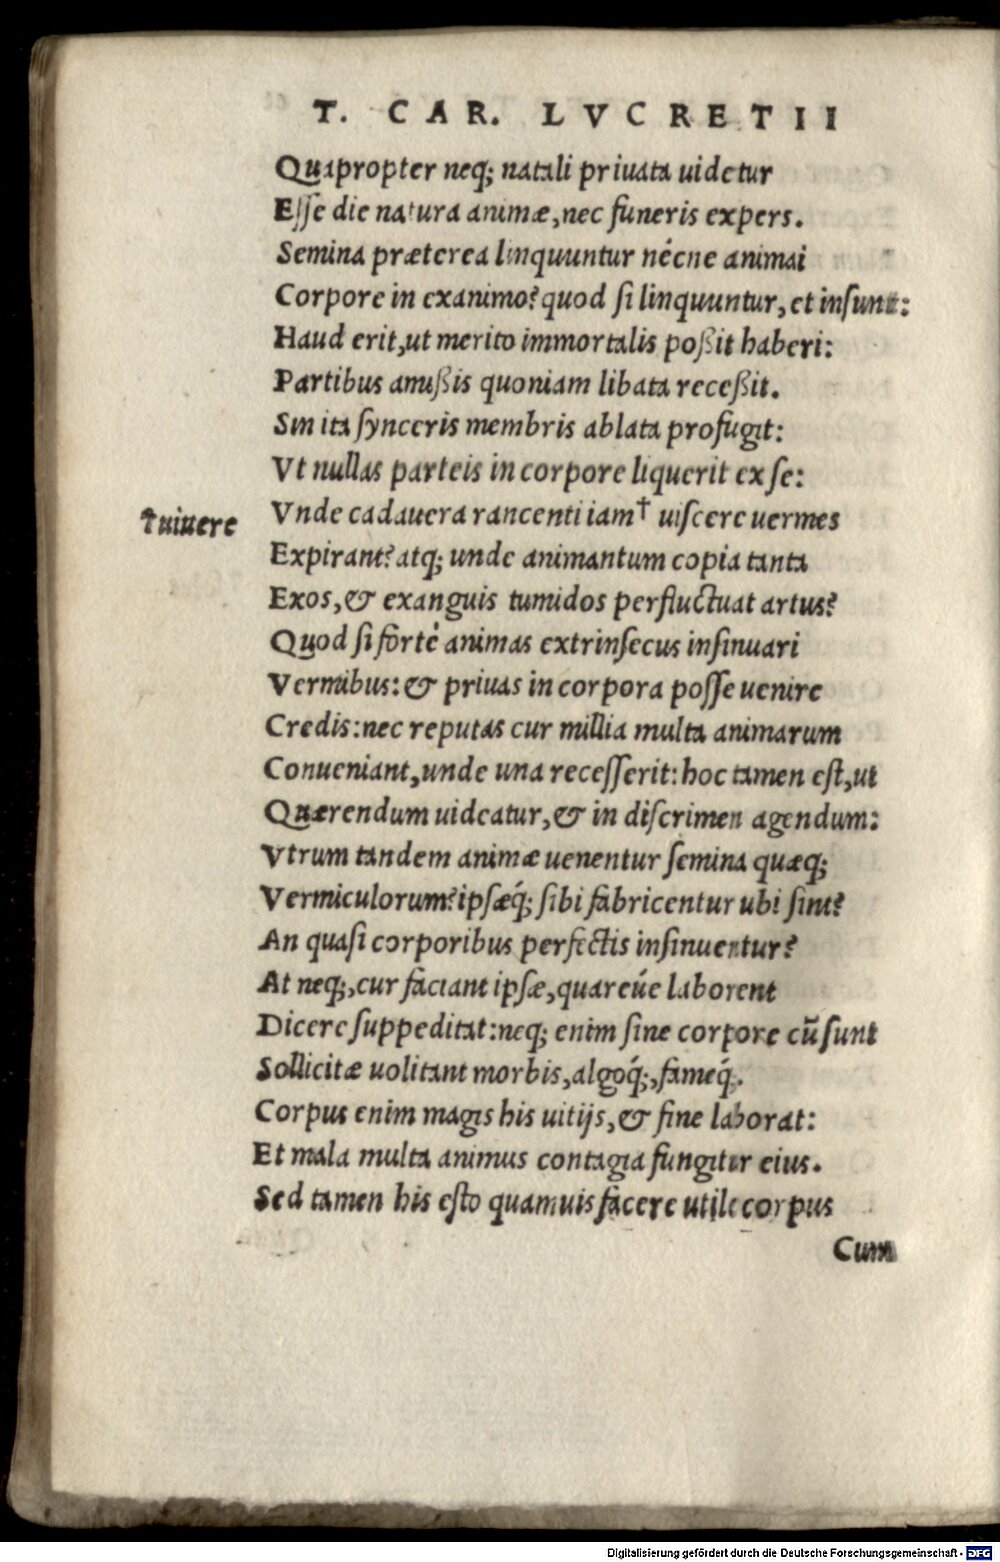 T. CAR. LVCRETII
Quapropter neq; natali priuata uidetur
Esse die natura animæ, nec funeris expers.
Semina præterea linquuntur nécne animai
Corpore in exanimo? quod si linquuntur, et insunt:
Haud erit, ut merito immortalis poßit haberi:
Partibus amißis quoniam libata receßit.
Sin ita synceris membris ablata profugit:
Vt nullas parteis in corpore liquerit ex se:
†uiuere
Vnde cadauera rancenti iam† uiscere uermes
Expirant? atq; unde animantum copia tanta
Exos, & exanguis tumidos perfluctuat artus?
Quod si fortè animas extrinsecus insinuari
Vermibus: & priuas in corpora posse uenire
Credis: nec reputas cur millia multa animarum
Conueniant, unde una recesserit: hoc tamen est, ut
Quærendum uideatur, & in discrimen agendum:
Vtrum tandem animæ uenentur semina quæq;
Vermiculorum? ipsæq́; sibi fabricentur ubi sint?
An quasi corporibus perfectis insinuentur?
At neq;, cur faciant ipsæ, quareúe laborent
Dicere suppeditat: neq; enim sine corpore cũ sunt
Sollicitæ uolitant morbis, algoq́;, fameq́.
Corpus enim magis his uitijs, & fine laborat:
Et mala multa animus contagia fungitur eius.
Sed tamen his esto quamuis facere utile corpus
Cum
Digitalisierung gefördert durch die Deutsche Forschungsgemeinschaft - DFG